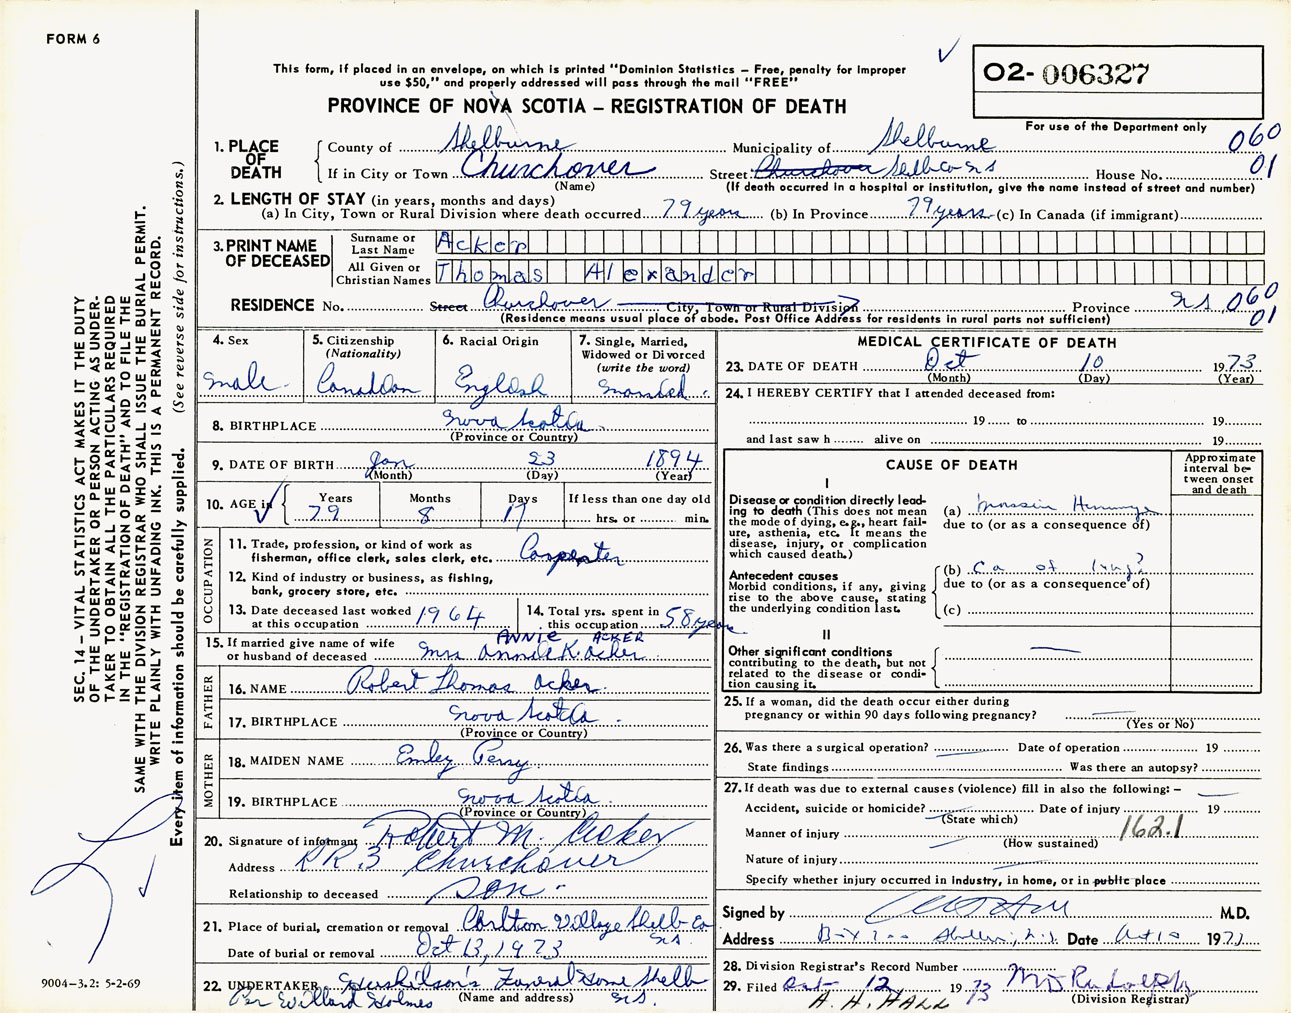 FORM 6
This form, if placed in an envelope, on which is printed "Dominion Statistics – Free, penalty for improper
use $50," and properly addressed will pass through the mail "FREE"
PROVINCE OF NOVA SCOTIA – REGISTRATION OF DEATH
02-006327
For use of the Department only
060
01
1. PLACE OF DEATH
County of Shelburne Municipality of Shelburne
If in City or Town Churchover Street Churchover Shelb Co NS House No.
(Name) (If death occurred in a hospital or institution, give the name instead of street and number)
2. LENGTH OF STAY (in years, months and days)
(a) In City, Town or Rural Division where death occurred 79 years (b) In Province 79 years (c) In Canada (if immigrant)
3. PRINT NAME OF DECEASED
Surname or Last Name Acker
All Given or Christian Names Thomas Alexander
RESIDENCE No. Street Churchover City, Town or Rural Division Province N.S. 060
01
(Residence means usual place of abode. Post Office Address for residents in rural parts not sufficient)
4. Sex
male
5. Citizenship
(Nationality)
Canadian
6. Racial Origin
English
7. Single, Married,
Widowed or Divorced
(write the word)
Married
8. BIRTHPLACE Nova Scotia
(Province or Country)
9. DATE OF BIRTH Jan 23 1894
(Month) (Day) (Year)
10. AGE in Years Months Days If less than one day old
79 8 17 hrs. or min.
OCCUPATION
11. Trade, profession, or kind of work as
fisherman, office clerk, sales clerk, etc. Carpenter
12. Kind of industry or business, as fishing,
bank, grocery store, etc.
13. Date deceased last worked
at this occupation 1964
14. Total yrs. spent in
this occupation 58 years
ANNIE ACKER
15. If married give name of wife
or husband of deceased Mrs Annie K. Acker
FATHER
16. NAME Robert Thomas Acker
17. BIRTHPLACE Nova Scotia
(Province or Country)
MOTHER
18. MAIDEN NAME Emley Perry
19. BIRTHPLACE Nova Scotia
(Province or Country)
20. Signature of informant Robert M. Acker
Address R.R.3 Churchover
Relationship to deceased Son
21. Place of burial, cremation or removal Carlton Village Shelb Co
NS.
Date of burial or removal Oct 13, 1973
22. UNDERTAKER Huskilson's Funeral Home Shelb
(Name and address) N.S.
Per Willard Holmes
MEDICAL CERTIFICATE OF DEATH
23. DATE OF DEATH Oct 10 1973
(Month) (Day) (Year)
24. I HEREBY CERTIFY that I attended deceased from:
19 to 19
and last saw h alive on 19
CAUSE OF DEATH
Approximate
interval be-
tween onset
and death
I
Disease or condition directly lead-
ing to death (This does not mean
the mode of dying, e.g., heart fail-
ure, asthenia, etc. It means the
disease, injury, or complication
which caused death.)
(a)
due to (or as a consequence of)
Antecedent causes
Morbid conditions, if any, giving
rise to the above cause, stating
the underlying condition last.
(b) Ca of lung?
due to (or as a consequence of)
(c)
II
Other significant conditions
contributing to the death, but not
related to the disease or condi-
tion causing it.
25. If a woman, did the death occur either during
pregnancy or within 90 days following pregnancy?
(Yes or No)
26. Was there a surgical operation? Date of operation 19
State findings Was there an autopsy?
27. If death was due to external causes (violence) fill in also the following: –
Accident, suicide or homicide? Date of injury 19
(State which)
Manner of injury 162.1
(How sustained)
Nature of injury
Specify whether injury occurred in Industry, in home, or in public place
Signed by M.D.
Address Date Oct 10 1973
28. Division Registrar's Record Number
29. Filed Oct 12 1973
(Division Registrar)
A. H. HALL
SEC. 14 – VITAL STATISTICS ACT MAKES IT THE DUTY
OF THE UNDERTAKER OR PERSON ACTING AS UNDER-
TAKER TO OBTAIN ALL THE PARTICULARS REQUIRED
IN THE "REGISTRATION OF DEATH" AND TO FILE THE
SAME WITH THE DIVISION REGISTRAR WHO SHALL ISSUE THE BURIAL PERMIT.
WRITE PLAINLY WITH UNFADING INK. THIS IS A PERMANENT RECORD.
Every item of information should be carefully supplied. (See reverse side for instructions.)
9004-3.2: 5-2-69